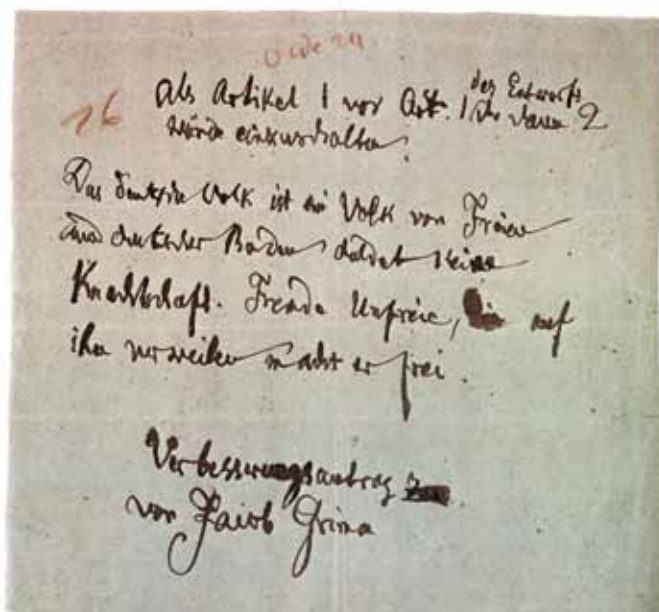 16
Als Artikel 1 vor Art. 1 des Entwurfs
würde einzuschalten:
Das deutsche Volk ist ein Volk von Freien
und deutscher Boden duldet keine
Knechtschaft. Fremde Unfreie, die auf
ihm verweilen macht er frei.
Verbesserungsantrag
von Jacob Grimm